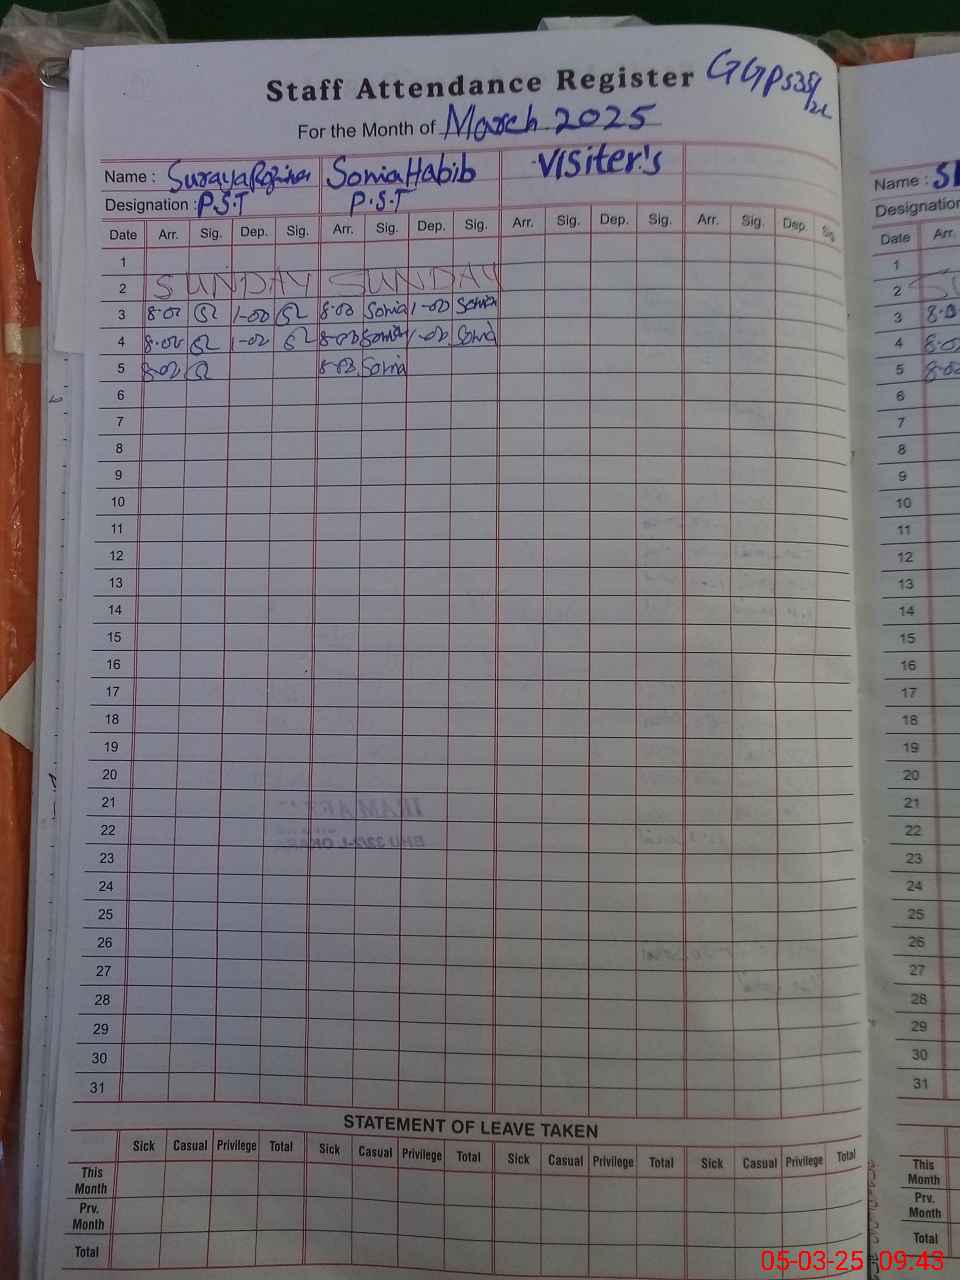 Staff Attendance Register GGPS 35/2L
For the Month of March 2025
Name : Suraya Sonia Habib Visiter's
Designation : P.S.T P.S.T
Date Arr. Sig. Dep. Sig. Arr. Sig. Dep. Sig. Arr. Sig. Dep. Sig. Arr. Sig. Dep. Sig
1
2 SUNDAY SUNDAY
3 8-00 1-00 8-00 Sonia 1-00 Sonia
4 8-00 1-00 8-00 Sonia 1-00 Sonia
5 8-00 8-00 Sonia
6
7
8
9
10
11
12
13
14
15
16
17
18
19
20
21
22
23
24
25
26
27
28
29
30
31
STATEMENT OF LEAVE TAKEN
Sick Casual Privilege Total Sick Casual Privilege Total Sick Casual Privilege Total Sick Casual Privilege Total
This Month
Prv. Month
Total
Name :
Designation
Date Arr.
1
2
3 8-0
4 8-00
5 8-00
6
7
8
9
10
11
12
13
14
15
16
17
18
19
20
21
22
23
24
25
26
27
28
29
30
31
This Month
Prv. Month
Total
05-03-25 09:43